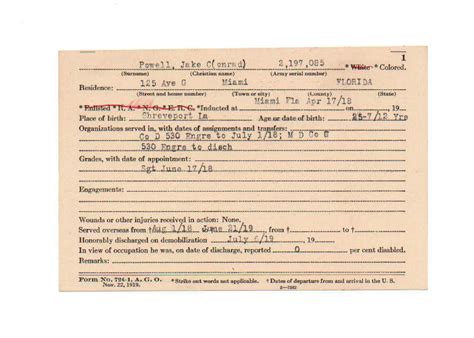 1
Powell, Jake C(onrad) 2,197,085 * White * Colored.
(Surname) (Christian name) (Army serial number)
Residence: 125 Ave G Miami FLORIDA
(Street and house number) (Town or city) (County) (State)
* Enlisted * R. A. * N. G. * E. R. C. * Inducted at Miami Fla Apr 17/18 on , 19
Place of birth: Shreveport La Age or date of birth: 25-7/12 Yrs
Organizations served in, with dates of assignments and transfers:
Co D 530 Engrs to July 1/18; M D Co
530 Engrs to disch
Grades, with date of appointment:
Sgt June 17/18
Engagements:
Wounds or other injuries received in action: None.
Served overseas from † Aug 1/18 June 21/19 from † to †
Honorably discharged on demobilization July 6/19 , 19
In view of occupation he was, on date of discharge, reported 0 per cent disabled.
Remarks:
Form No. 724-1, A. G. O. * Strike out words not applicable. † Dates of departure from and arrival in the U. S.
Nov. 22, 1919.